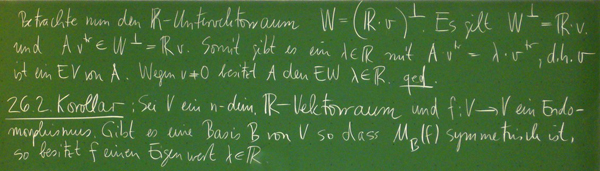 Betrachte nun den ℝ-Untervektorraum W = (ℝ·v)^⊥. Es gilt W^⊥ = ℝ·v.
und A v^tr ∈ W^⊥ = ℝv. Somit gibt es ein λ∈ℝ mit A v^tr = λ·v^tr, d.h. v
ist ein EV von A. Wegen v≠0 besitzt A den EW λ∈ℝ. qed.
26.2. Korollar: Sei V ein n-dim. ℝ-Vektorraum und f: V→V ein Endo-
morphismus. Gibt es eine Basis B von V so dass M_B(f) symmetrisch ist,
so besitzt f einen Eigenwert λ∈ℝ.